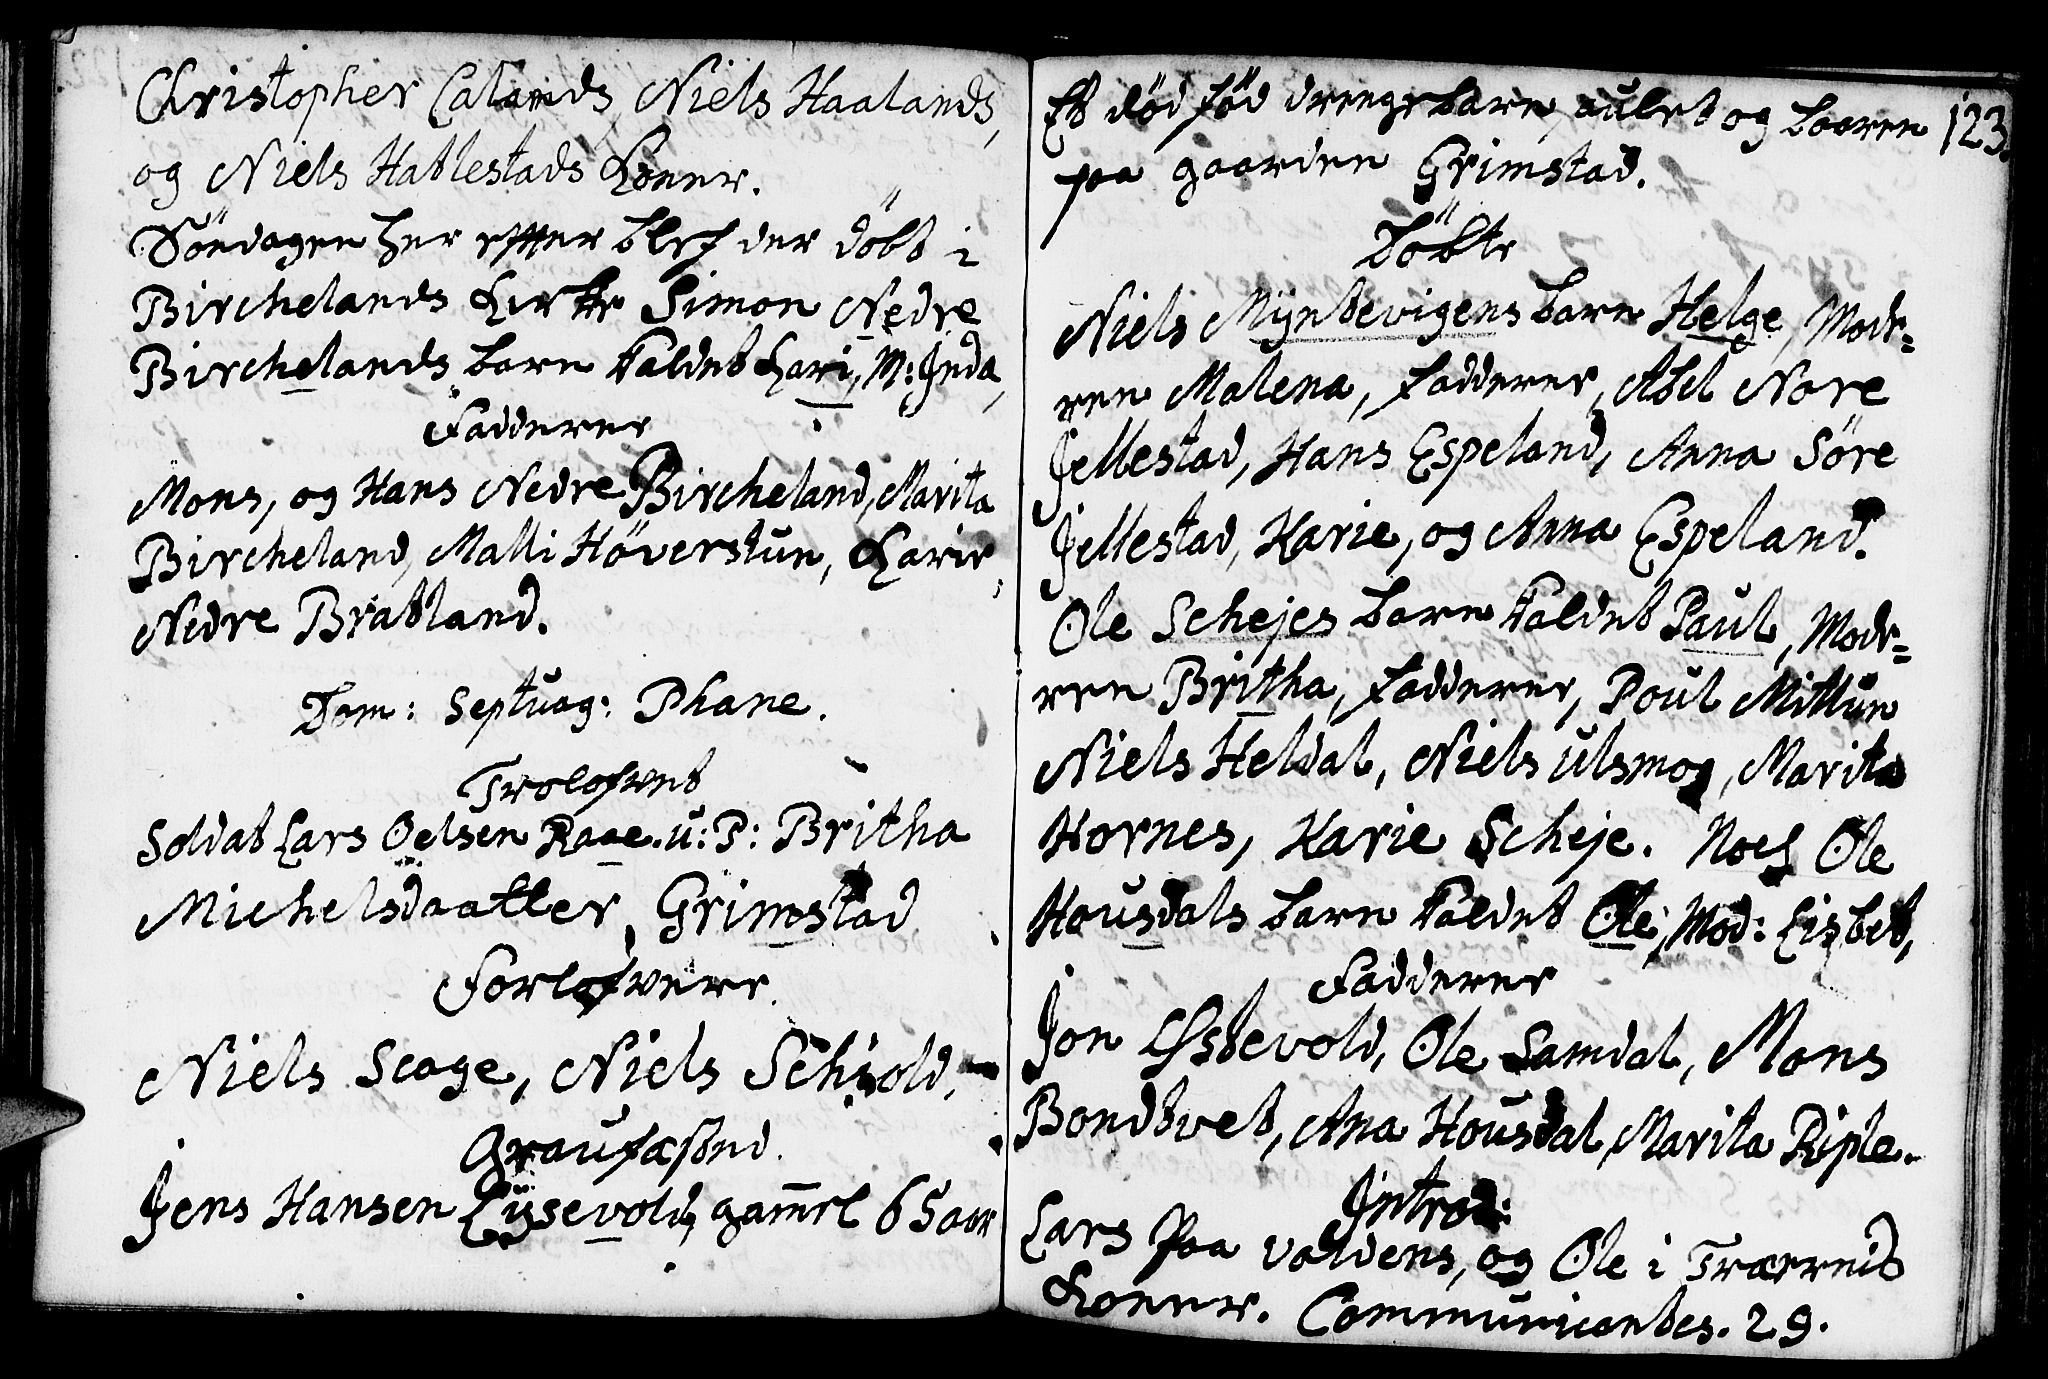 Christopher Calands, Niels Haalands,
og Niels Hatlestads Koner.
Söndagen her effter blef der döbt i
Birchelands Kirke Simon Nedre
Birchelands barn kaldet Kari, M: Jnda,
Fadderer
Mons, og Hans Nedre Bircheland, Marita
Bircheland, Malli Höverstun, Karie,
Nedre Bratland.
Dom: Septuag: Phane.
Trolofvet
Soldat Lars Oelsen Raae. u: P: Britha
Michelsdaatter, Grimstad
Forlofvere.
Niels Scage, Niels Schiold,
Graufæstned.
Jens Hansen Lysevold, gamel 65 aar
Et död föd drengebarn, aulet og baaren 123.
paa gaarden Grimstad.
Döbte
Niels Myntevigens barn Helge, Mode=
ren Malena, Fadderer, Abel Nore
Jellestad, Hans Espeland, Anna Söre
Jellestad, Karie, og Anna Espeland.
Ole Schejes barn kaldet Paul, Mode=
ren Britha, Fadderer, Poul Mittun
Niels Heldal, Niels Ulsmog, Marita
Hornes, Karie Scheje. Noch Ole
Housdals barn kaldet Ole, Mod: Lisbet,
Fadderer
Jon Ystevold, Ole Samdal, Mons
Bondtvet, Ana Housdal, Marita Riple.
Jntrod:
Lars paa valdens, og Ole i Træernis
Koner. Communicantes. 29.